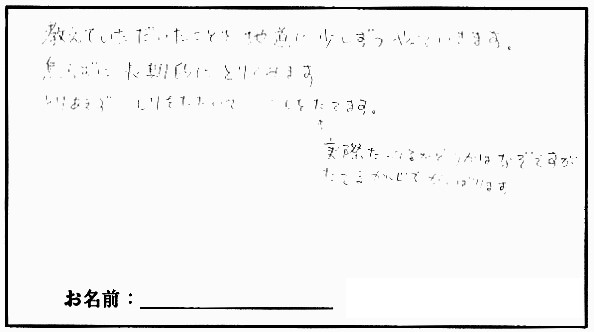 教えていただいたことを地道に少しずつやっていきます。
焦らずに長期的にとりくみます
とりあえず しりをたたいて をたてます。
実際たっているかどうかはなぞですが
たてるかんじでがんばります
お名前：